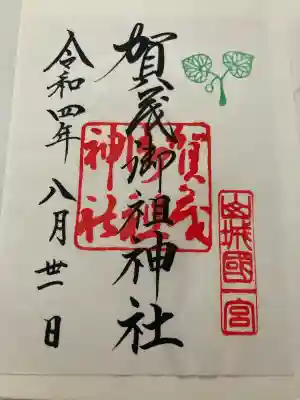 山城國一宮
賀茂御祖神社
賀茂御祖神社
令和四年 八月 丗一日